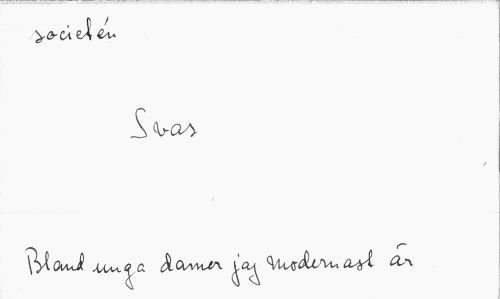 societén
Svas
Bland unga damer jag modernast är